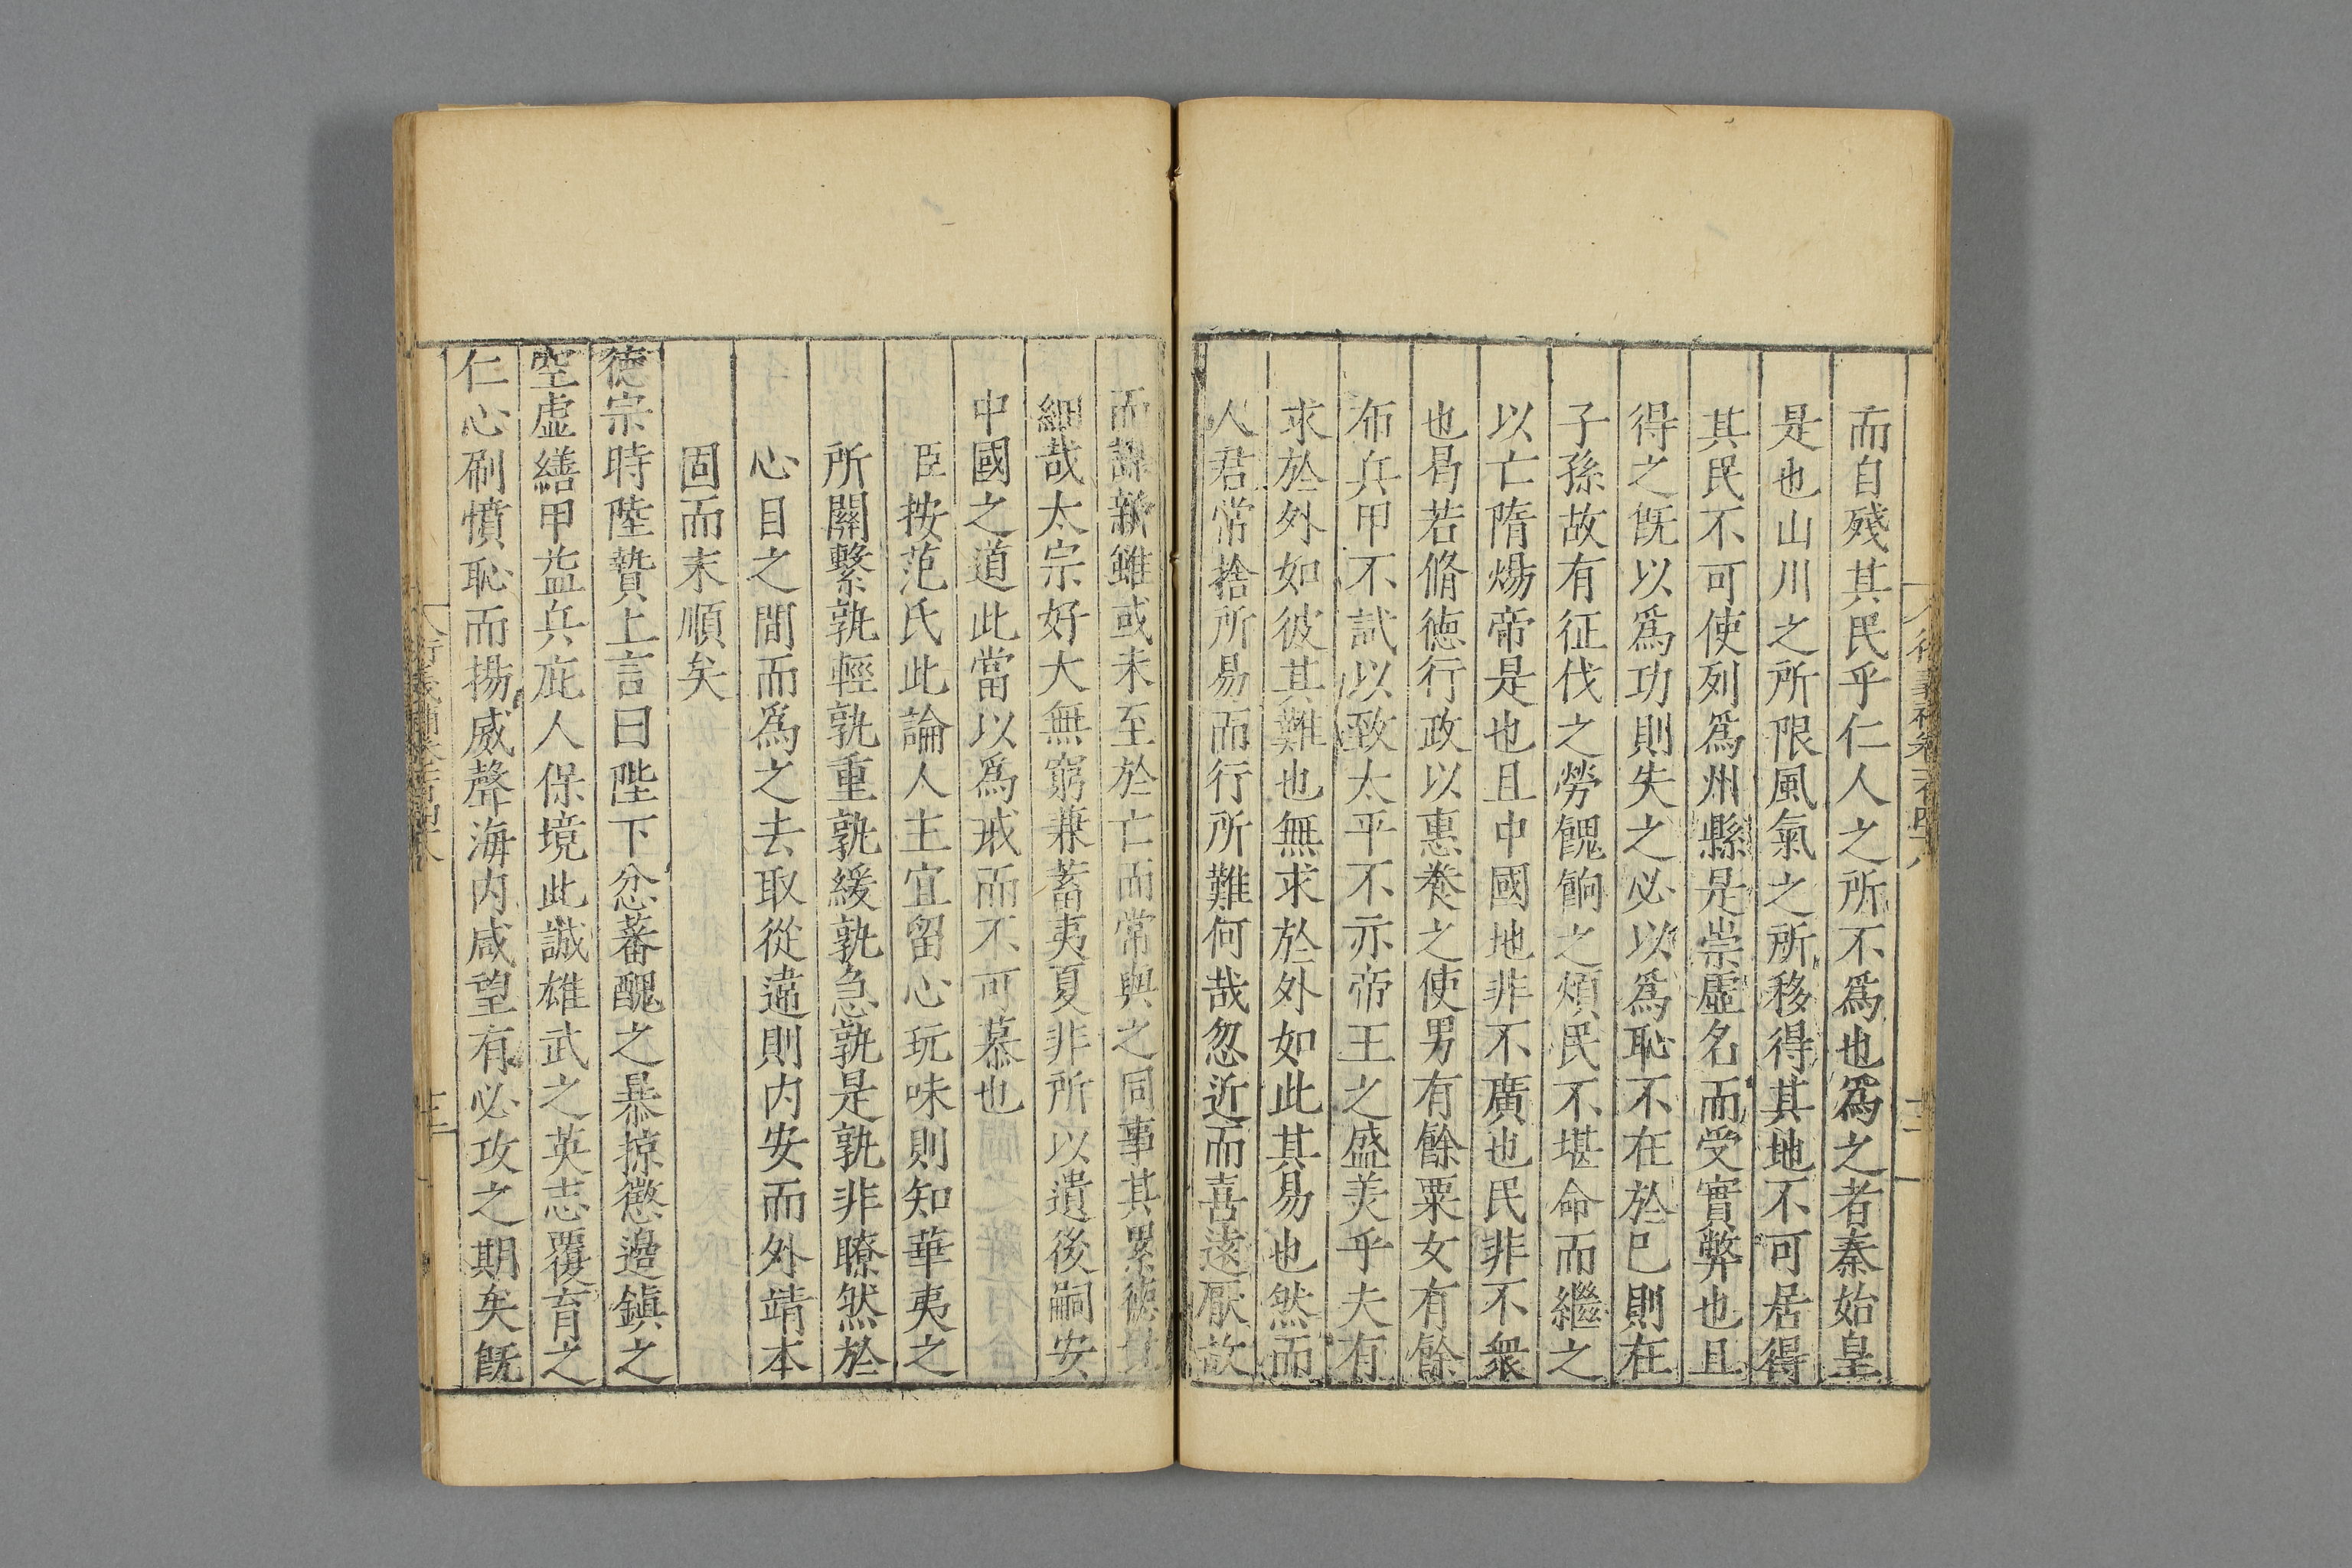 而自殘其民乎仁人之所不爲也爲之者秦始皇
是也山川之所限風氣之所移得其地不可居得
其民不可使列爲州縣是崇虛名而受實弊也且
得之旣以爲功則失之必以爲恥不在於已則在
子孫故有征伐之勞餽餉之煩民不堪命而繼之
以亡隋煬帝是也且中國地非不廣也民非不衆
也曷若脩德行政以惠養之使男有餘粟女有餘
布兵甲不試以致太平不亦帝王之盛羙乎夫有
求於外如彼其難也無求於外如此其易也然而
人君常捨所易而行所難何哉忽近而喜遠厭故
而謀新雖或未至於亡而常與之同事其累德豈
細哉太宗好大無窮兼蓄夷夏非所以遺後嗣安
中國之道此當以爲戒而不可慕也
臣按范氏此論人主宜留心玩味則知華夷之
所關繫孰輕孰重孰緩孰急孰是孰非瞭然於
心目之間而爲之去取從違則内安而外靖本
固而末順矣
德宗時陸贄上言曰陛下忿蕃醜之暴掠懲邊鎭之
空虛繕甲益兵庇人保境此誠雄武之英志覆育之
仁心刷憤恥而揚威聲海内咸望有必攻之期矣旣